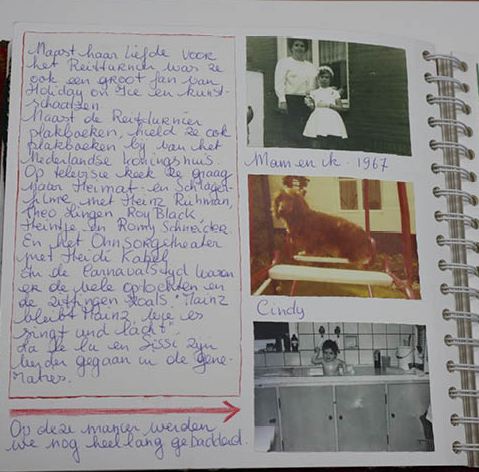 Naast haar liefde voor
het Reitturnier was ze
ook een groot fan van
Holiday on Ice en kunst-
schaatsen
Naast de Reitturnier
plakboeken, hield ze ook
plakboeken bij van het
Nederlandse koningshuis.
Op televisie keek ze graag
naar Heimat- en Schlager-
filme met Heinz Rühman,
Theo Lingen Roy Black,
Heintje en Romy Schneider.
En het Ohnsorgtheater
met Heidi Kabel
En de Carnavalstyd waren
er de vele optochten en
de zittingen zoals "Mainz
bleibt Mainz, wie es
singt und lacht".
La le lu en Sissi zyn
verder gegaan in de gene-
raties.
Op deze manier werden
we nog heel lang gebadderd.
Mam en ik. 1967
Cindy